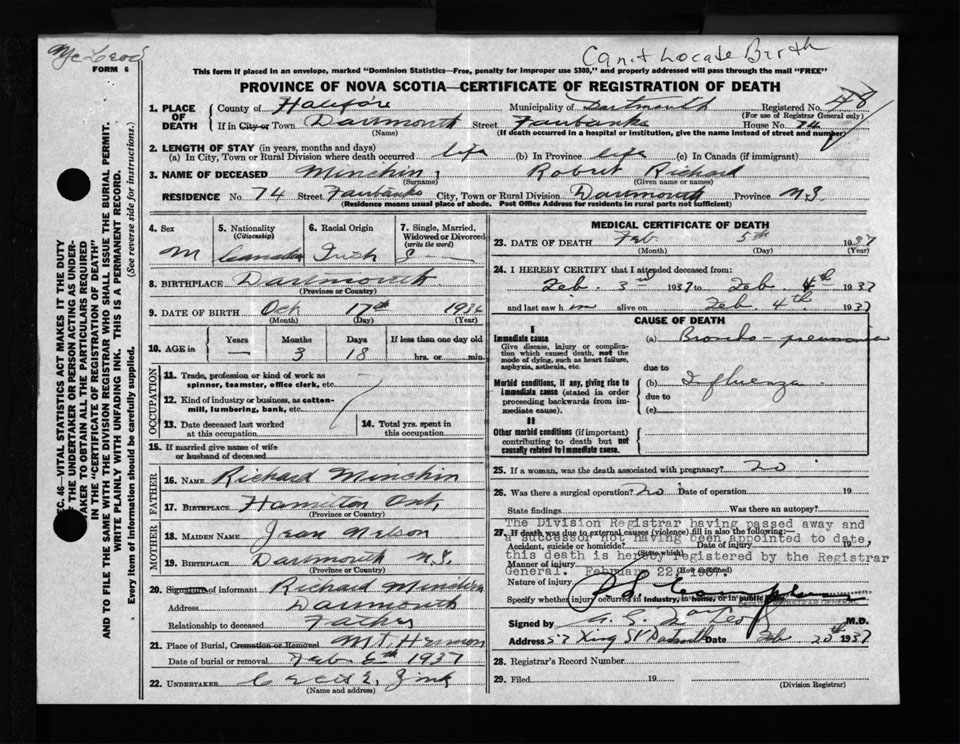 McLeod
Can't Locate Birth
FORM 6
This form if placed in an envelope, marked "Dominion Statistics—Free, penalty for improper use $300," and properly addressed will pass through the mail "FREE"
PROVINCE OF NOVA SCOTIA—CERTIFICATE OF REGISTRATION OF DEATH
1. PLACE OF DEATH
County of Halifax Municipality of Dartmouth Registered No. 48
(For use of Registrar General only)
If in City or Town Dartmouth Street Fairbanks House No. 74
(Name) (If death occurred in a hospital or institution, give the name instead of street and number)
2. LENGTH OF STAY (in years, months and days)
(a) In City, Town or Rural Division where death occurred life (b) In Province life (c) In Canada (if immigrant)
3. NAME OF DECEASED Minchin, Robert Richard
(Surname) (Given name or names)
RESIDENCE No 74 Street Fairbanks City, Town or Rural Division Dartmouth Province N.S.
(Residence means usual place of abode. Post Office Address for residents in rural parts not sufficient)
4. Sex M
5. Nationality (Citizenship) Canadian
6. Racial Origin Irish
7. Single, Married, Widowed or Divorced (write the word) S
8. BIRTHPLACE Dartmouth
(Province or Country)
9. DATE OF BIRTH Oct 17th 1936
(Month) (Day) (Year)
10. AGE in Years — Months 3 Days 18 If less than one day old
hrs. or min.
OCCUPATION
11. Trade, profession or kind of work as spinner, teamster, office clerk, etc.
12. Kind of industry or business, as cotton-mill, lumbering, bank, etc.
13. Date deceased last worked at this occupation
14. Total yrs. spent in this occupation
15. If married give name of wife or husband of deceased
FATHER
16. NAME Richard Minchin
17. BIRTHPLACE Hamilton Ont.
(Province or Country)
MOTHER
18. MAIDEN NAME Jean Nelson
19. BIRTHPLACE Dartmouth N.S.
(Province or Country)
20. Signature of informant Richard Minchin
Address Dartmouth
Relationship to deceased Father
21. Place of Burial, Cremation or Removal Mt. Hermon
Date of burial or removal Feb 6th 1937
22. UNDERTAKER Cecil E. Zink
(Name and address)
MEDICAL CERTIFICATE OF DEATH
23. DATE OF DEATH Feb. 5th 1937
(Month) (Day)
24. I HEREBY CERTIFY that I attended deceased from:
Feb. 3rd 1937 to Feb. 4th 1937
and last saw him alive on Feb. 4th 1937
CAUSE OF DEATH
I
Immediate cause
Give disease, injury or complication which caused death, not the mode of dying, such as heart failure, asphyxia, asthenia, etc.
(a) Broncho-pneumonia
due to
Morbid conditions, if any, giving rise to immediate cause (stated in order proceeding backwards from immediate cause).
(b) Influenza
due to
(c)
II
Other morbid conditions (if important) contributing to death but not causally related to immediate cause.
25. If a woman, was the death associated with pregnancy? no
26. Was there a surgical operation? no Date of operation 19
State findings Was there an autopsy?
27. If death was due to external causes (violence) fill in also the following:—
Accident, suicide or homicide? Date of injury 19
(State which)
Manner of injury
(How sustained)
Nature of injury
Specify whether injury occurred in industry, in home, or in public place
The Division Registrar having passed away and
a successor not having been appointed to date,
this death is hereby registered by the Registrar
General. February 22, 1937.
REGISTRAR GENERAL
Signed by M.D.
Address 57 King St Dartmouth Date Feb 20th 1937
28. Registrar's Record Number
29. Filed 19
(Division Registrar)
SEC. 46—VITAL STATISTICS ACT MAKES IT THE DUTY
OF THE UNDERTAKER OR PERSON ACTING AS UNDER-
TAKER TO OBTAIN ALL THE PARTICULARS REQUIRED
IN THE "CERTIFICATE OF REGISTRATION OF DEATH"
AND TO FILE THE SAME WITH THE DIVISION REGISTRAR WHO SHALL ISSUE THE BURIAL PERMIT.
WRITE PLAINLY WITH UNFADING INK. THIS IS A PERMANENT RECORD.
Every item of information should be carefully supplied. (See reverse side for instructions.)